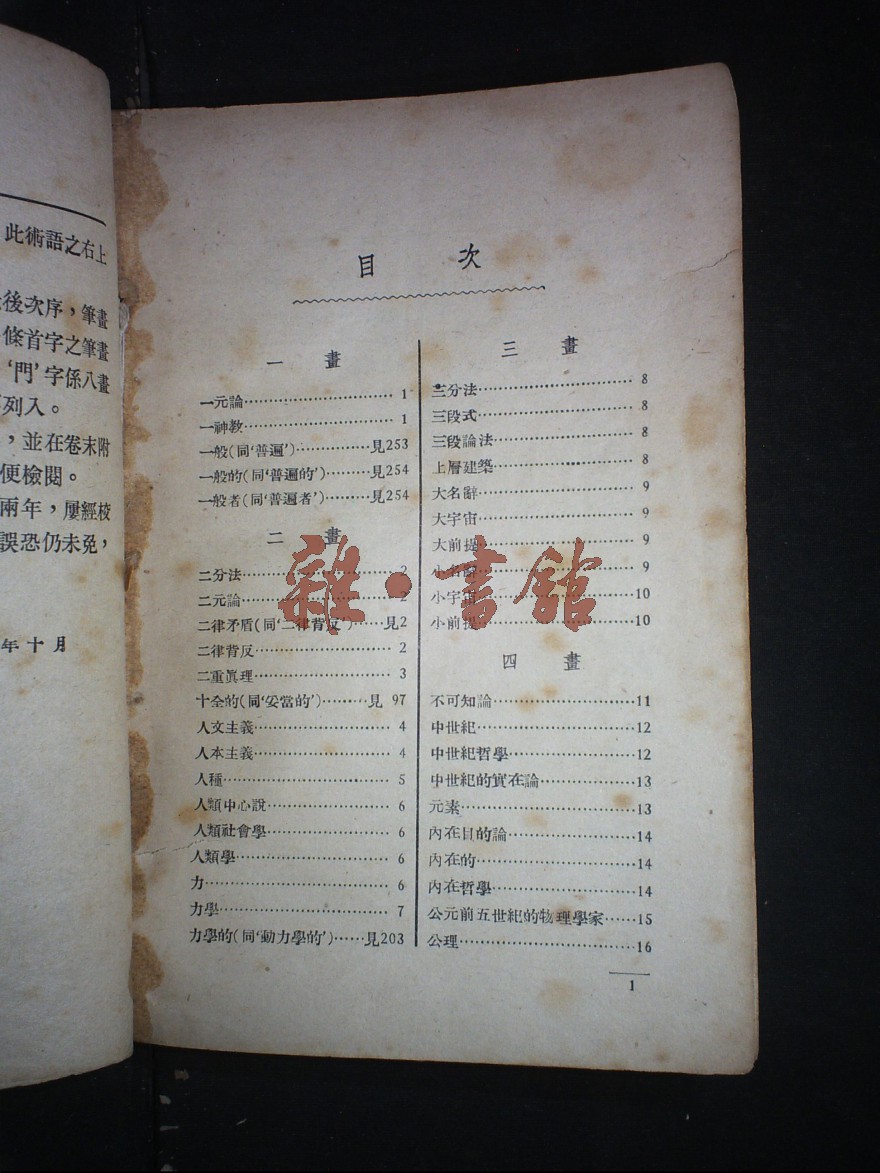 此術語之右上
後次序，筆畫
條首字之筆畫
‘門’字係八畫
列入。
，並在卷末附
便檢閱。
兩年，屢經校
誤恐仍未免，
年十月
目 次
一 畫
一元論……………………………1
一神教……………………………1
一般(同‘普遍’)…………見253
一般的(同‘普遍的’)………見254
一般者(同‘普遍者’)………見254
二 畫
二分法……………………………2
二元論……………………………2
二律矛盾(同‘二律背反’)……見2
二律背反…………………………2
二重眞理…………………………3
十全的(同‘妥當的’)………見 97
人文主義…………………………4
人本主義…………………………4
人種………………………………5
人類中心說………………………6
人類社會學………………………6
人類學……………………………6
力…………………………………6
力學………………………………7
力學的(同‘動力學的’)……見203
三 畫
三分法……………………………8
三段式……………………………8
三段論法…………………………8
上層建築…………………………8
大名辭……………………………9
大宇宙……………………………9
大前提……………………………9
小名辭……………………………9
小宇宙……………………………10
小前提……………………………10
四 畫
不可知論…………………………11
中世紀……………………………12
中世紀哲學………………………12
中世紀的實在論…………………13
元素………………………………13
內在目的論………………………14
內在的……………………………14
內在哲學…………………………14
公元前五世紀的物理學家……15
公理………………………………16
1
雜·書館